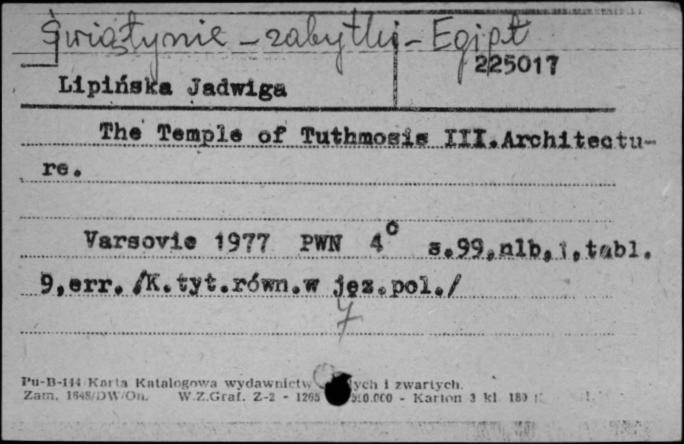 Świątynie - zabytki - Egipt
225017
Lipińska Jadwiga
The Temple of Tuthmosis III.Architectu-
re.
Varsovie 1977 PWN 4° s.99,nlb,1,tabl.
9,err. /K.tyt.równ.w jęz.pol./
7
Pu-B-144 Karta Katalogowa wydawnictw ych i zwartych.
Zam. 1648/DW/On. W.Z.Graf. Z-2 - 1265 - Karton 3 kl. 180